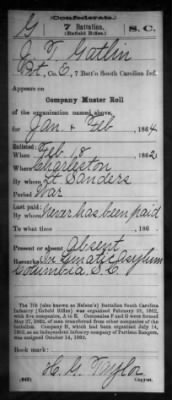 (Confederate.)
G 7 Battalion, S. C.
(Enfield Rifles.)
J T Gatlin
Pvt, Co. E, 7 Batt'n South Carolina Inf.
Appears on
Company Muster Roll
of the organization named above,
for Jan & Feb, 1864.
Enlisted:
When Feb 18, 1862
Where Charleston
By whom Lt Sanders
Period War
Last paid:
By whom Never has been paid
To what time , 186 .
Present or absent Absent
Remarks: In Lunatic Asylum
Columbia S.C.
The 7th (also known as Nelson's) Battalion South Carolina
Infantry (Enfield Rifles) was organized February 22, 1862,
with five companies, A to E. Companies F and G were formed
May 27, 1862, of men transferred from other companies of the
battalion. Company H, which had been organized July 14,
1862, as an independent company of Partisan Rangers,
was assigned October 14, 1862.
Book mark:
H. G. Taylor
(642) Copyist.